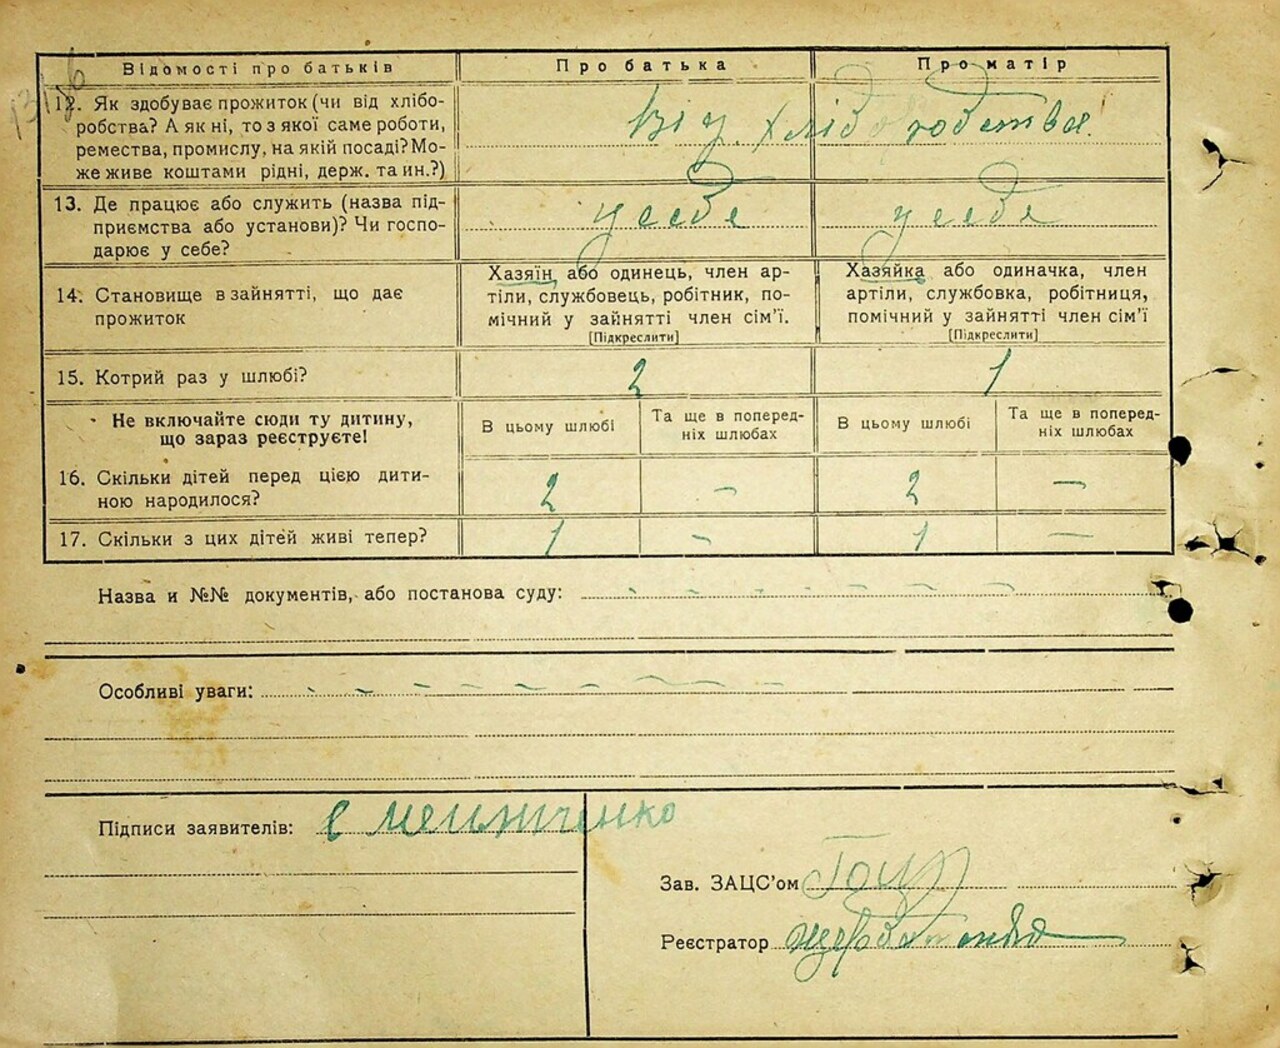 Відомості про батьків
Про батька
Про матір
12. Як здобуває прожиток (чи від хлібо-
робства? А як ні, то з якої саме роботи,
ремества, промислу, на якій посаді? Мо-
же живе коштами рідні, держ. та ин.?)
від хліборобства.
13. Де працює або служить (назва під-
приємства або установи)? Чи госпо-
дарює у себе?
у себе
у себе
14. Становище в зайнятті, що дає
прожиток
Хазяїн або одинець, член ар-
тіли, службовець, робітник, по-
мічний у зайнятті член сім'ї.
[Підкреслити]
Хазяйка або одиначка, член
артіли, службовка, робітниця,
помічний у зайнятті член сім'ї
[Підкреслити]
15. Котрий раз у шлюбі?
2
1
Не включайте сюди ту дитину,
що зараз реєструєте!
В цьому шлюбі
Та ще в поперед-
ніх шлюбах
В цьому шлюбі
Та ще в поперед-
ніх шлюбах
16. Скільки дітей перед цією дити-
ною народилося?
2
–
2
–
17. Скільки з цих дітей живі тепер?
1
–
1
–
Назва и №№ документів, або постанова суду: - - - - - - -
Особливі уваги: - - - - - - - -
Підписи заявителів:
Зав. ЗАЦС'ом
Реєстратор